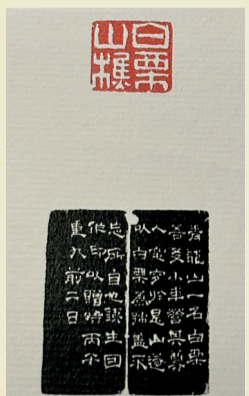 白栗
山樵
青龍山一名白栗
吾友小車營其尊
人窀穸於是山遂
以白栗為號蓋不
忘所自也生
作印以贈時丙
重九前二日